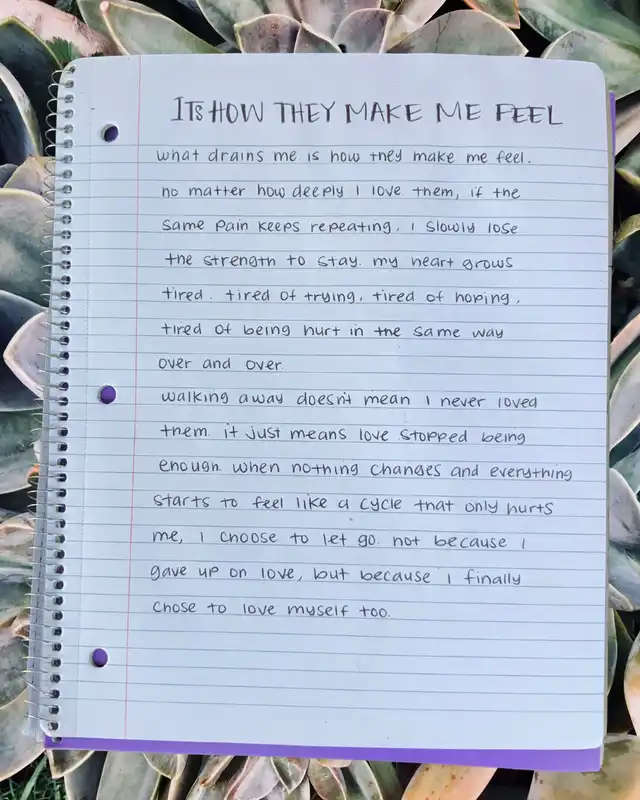 ITS HOW THEY MAKE ME FEEL
what drains me is how they make me feel.
no matter how deeply I love them, if the
same pain keeps repeating. I slowly lose
the strength to stay. my heart grows
tired. tired of trying, tired of hoping,
tired of being hurt in the same way
over and over.
walking away doesn't mean I never loved
them. it just means love stopped being
enough. when nothing changes and everything
starts to feel like a cycle that only hurts
me, I choose to let go. not because I
gave up on love, but because I finally
chose to love myself too.